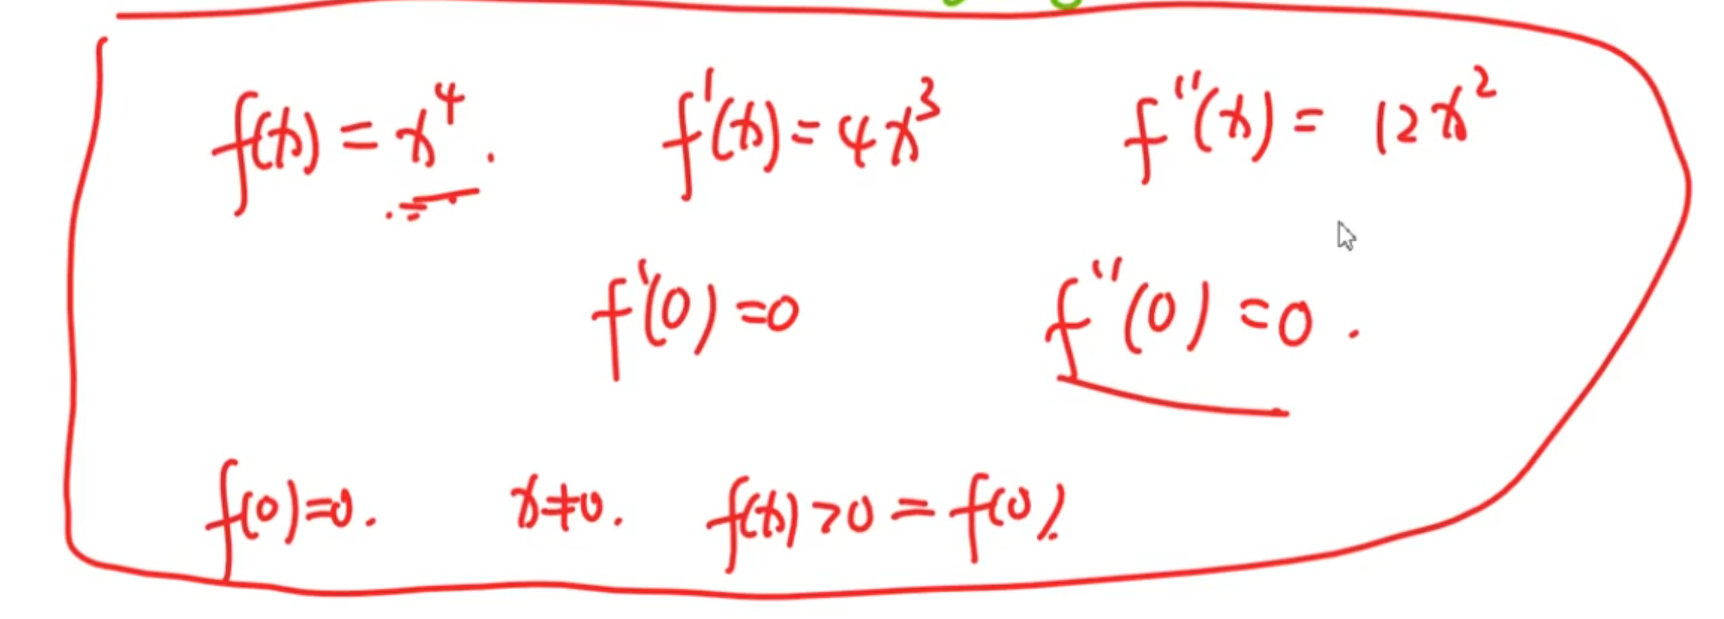 f(x) = x⁴. f'(x) = 4x³ f''(x) = 12x²
f'(0) = 0 f''(0) = 0.
f(0)=0. x≠0. f(x)>0 = f(0).